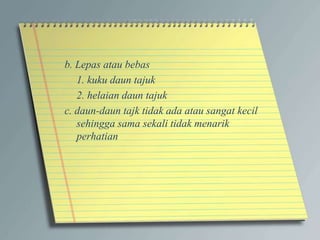 b. Lepas atau bebas
1. kuku daun tajuk
2. helaian daun tajuk
c. daun-daun tajk tidak ada atau sangat kecil
sehingga sama sekali tidak menarik
perhatian